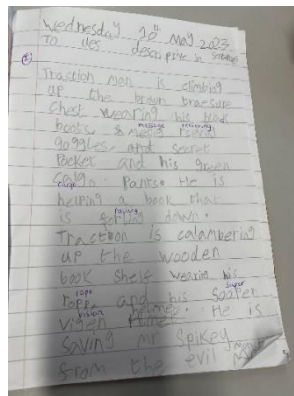 Wednesday 10th May 2023
To use descriptive in
Traction Man is climbing
up the brown traesure
chest wearing his
goggles and secret
Pocket and his green
cargo
Pants. He is
helping a book that
falling
is down.
Traction is calambering
up the wooden
book shelf wearing his
rope super
roppe and his sooper
vision
vigen helmet. He is
Saving mr Spikey
from the evil